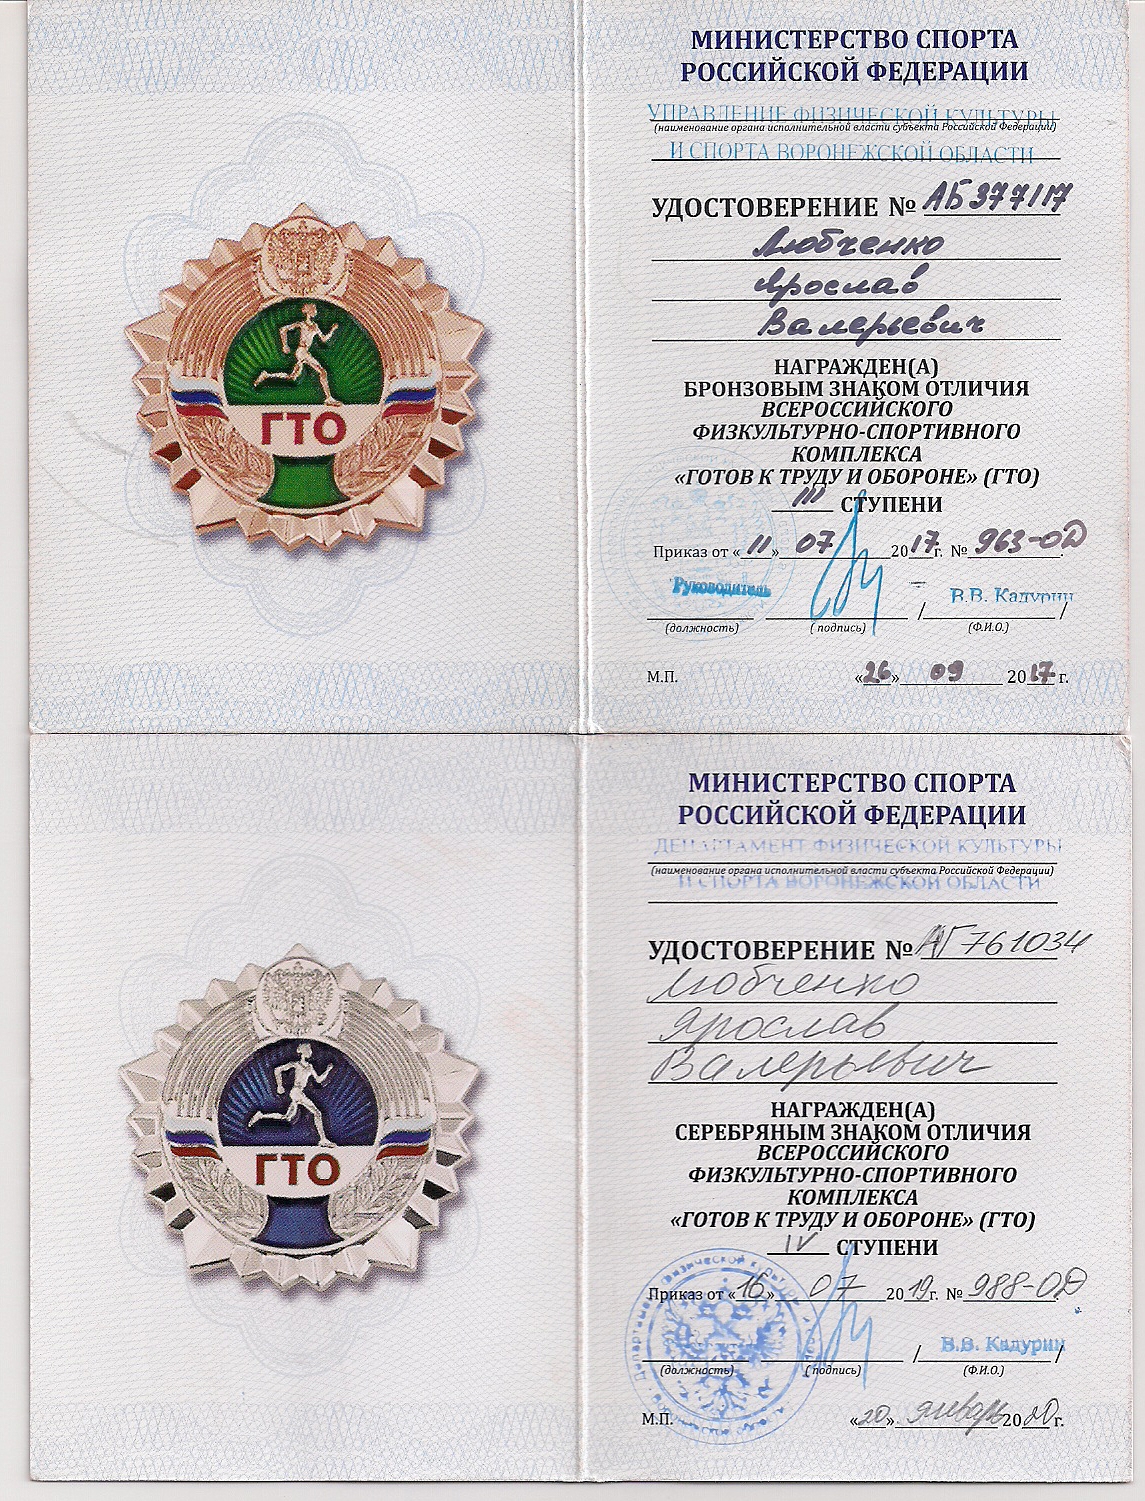 МИНИСТЕРСТВО СПОРТА
РОССИЙСКОЙ ФЕДЕРАЦИИ
УПРАВЛЕНИЕ ФИЗИЧЕСКОЙ КУЛЬТУРЫ
(наименование органа исполнительной власти субъекта Российской Федерации)
И СПОРТА ВОРОНЕЖСКОЙ ОБЛАСТИ
УДОСТОВЕРЕНИЕ № АБ 377117
Любченко
Ярослав
Валерьевич
НАГРАЖДЕН(А)
БРОНЗОВЫМ ЗНАКОМ ОТЛИЧИЯ
ВСЕРОССИЙСКОГО
ФИЗКУЛЬТУРНО-СПОРТИВНОГО
КОМПЛЕКСА
«ГОТОВ К ТРУДУ И ОБОРОНЕ» (ГТО)
III СТУПЕНИ
Приказ от «11» 07 2017г. № 963-ОД
Руководитель В.В. Кадурин
(должность) (подпись) / (Ф.И.О.) /
М.П. «26» 09 2017 г.
ГТО
МИНИСТЕРСТВО СПОРТА
РОССИЙСКОЙ ФЕДЕРАЦИИ
ДЕПАРТАМЕНТ ФИЗИЧЕСКОЙ КУЛЬТУРЫ
(наименование органа исполнительной власти субъекта Российской Федерации)
И СПОРТА ВОРОНЕЖСКОЙ ОБЛАСТИ
УДОСТОВЕРЕНИЕ № АГ 761034
Любченко
Ярослав
Валерьевич
НАГРАЖДЕН(А)
СЕРЕБРЯНЫМ ЗНАКОМ ОТЛИЧИЯ
ВСЕРОССИЙСКОГО
ФИЗКУЛЬТУРНО-СПОРТИВНОГО
КОМПЛЕКСА
«ГОТОВ К ТРУДУ И ОБОРОНЕ» (ГТО)
IV СТУПЕНИ
Приказ от «16» 07 2019г. № 988-ОД
В.В. Кадурин
(должность) (подпись) / (Ф.И.О.) /
М.П. «20» январь 2020г.
ГТО